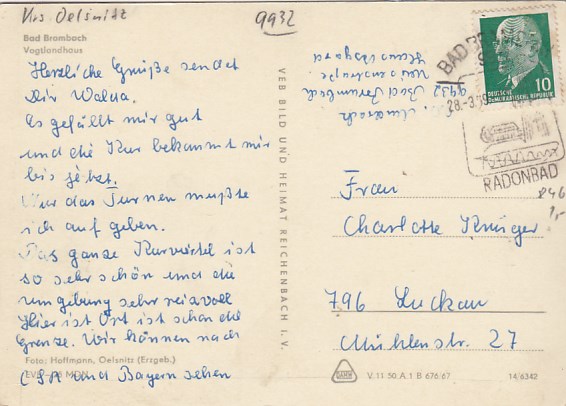 Krs. Oelsnitz
9932
Bad Brambach
Vogtlandhaus
Herzliche Grüße sendet
Dir Walda.
Es gefällt mir gut
und die Kur bekommt mir
bis jetzt.
Nur das Turnen mußte
ich auf geben.
Das ganze Kurviertel ist
so sehr schön und die
umgebung sehr reizvoll
Hier ist Ort ist schon die
Grenze. Wir können nach
ČSR und Bayern sehen
Foto: Hoffmann, Oelsnitz (Erzgeb.)
EVP
MDN
VEB BILD UND HEIMAT REICHENBACH I. V.
9932 Bad Brambach
BAD
28.-3.69
RADONBAD
DEUTSCHE
DEMOKRATISCHE REPUBLIK
10
846
1,-
Frau
Charlotte Krüger
796 Luckau
Mühlenstr. 27
V 11 50 A 1 B 676/67
14/6342